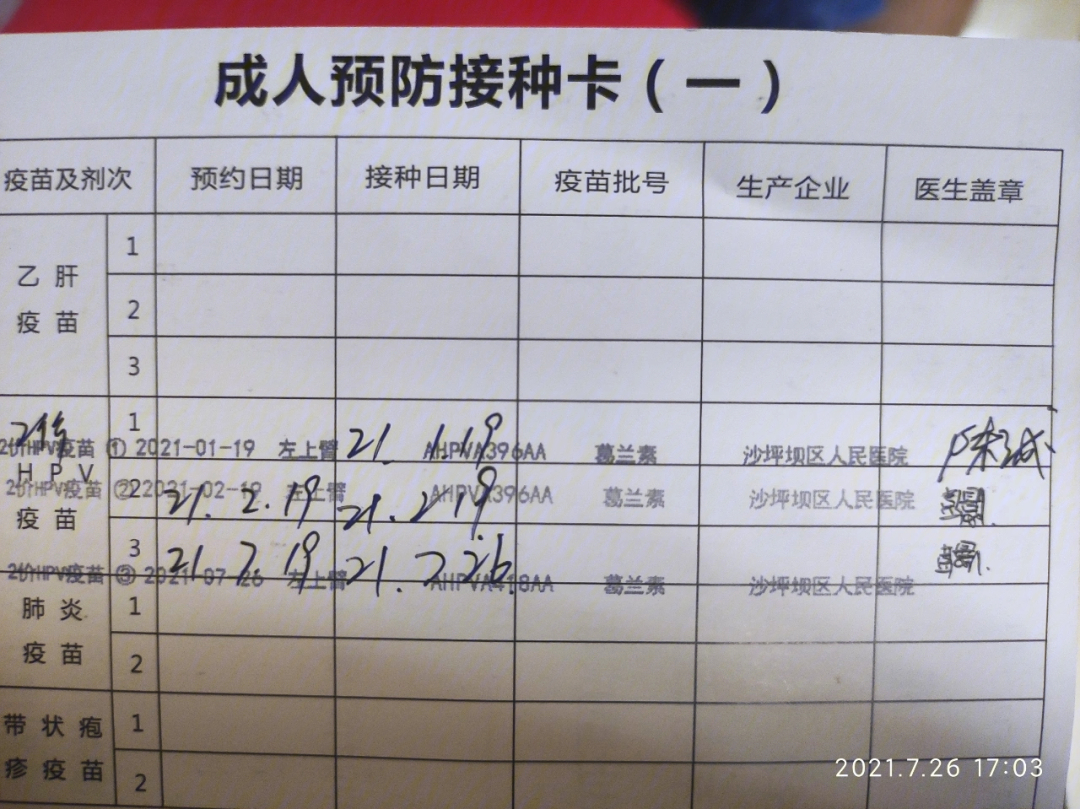 成人预防接种卡(一)
疫苗及剂次 预约日期 接种日期 疫苗批号 生产企业 医生盖章
乙肝疫苗
1
2
3
2价
HPV疫苗
1
21. 1.19
2价HPV疫苗 ① 2021-01-19 左上臂 AHPVA396AA 葛兰素 沙坪坝区人民医院
2
21. 2. 19 21. 2 19
2价HPV疫苗 ② 2021-02-19 左上臂 AHPVA396AA 葛兰素 沙坪坝区人民医院
3
21 7 19 21. 7 26
2价HPV疫苗 ③ 2021-07-26 左上臂 AHPVA418AA 葛兰素 沙坪坝区人民医院
肺炎疫苗
1
2
带状疱疹疫苗
1
2
2021.7.26 17:03